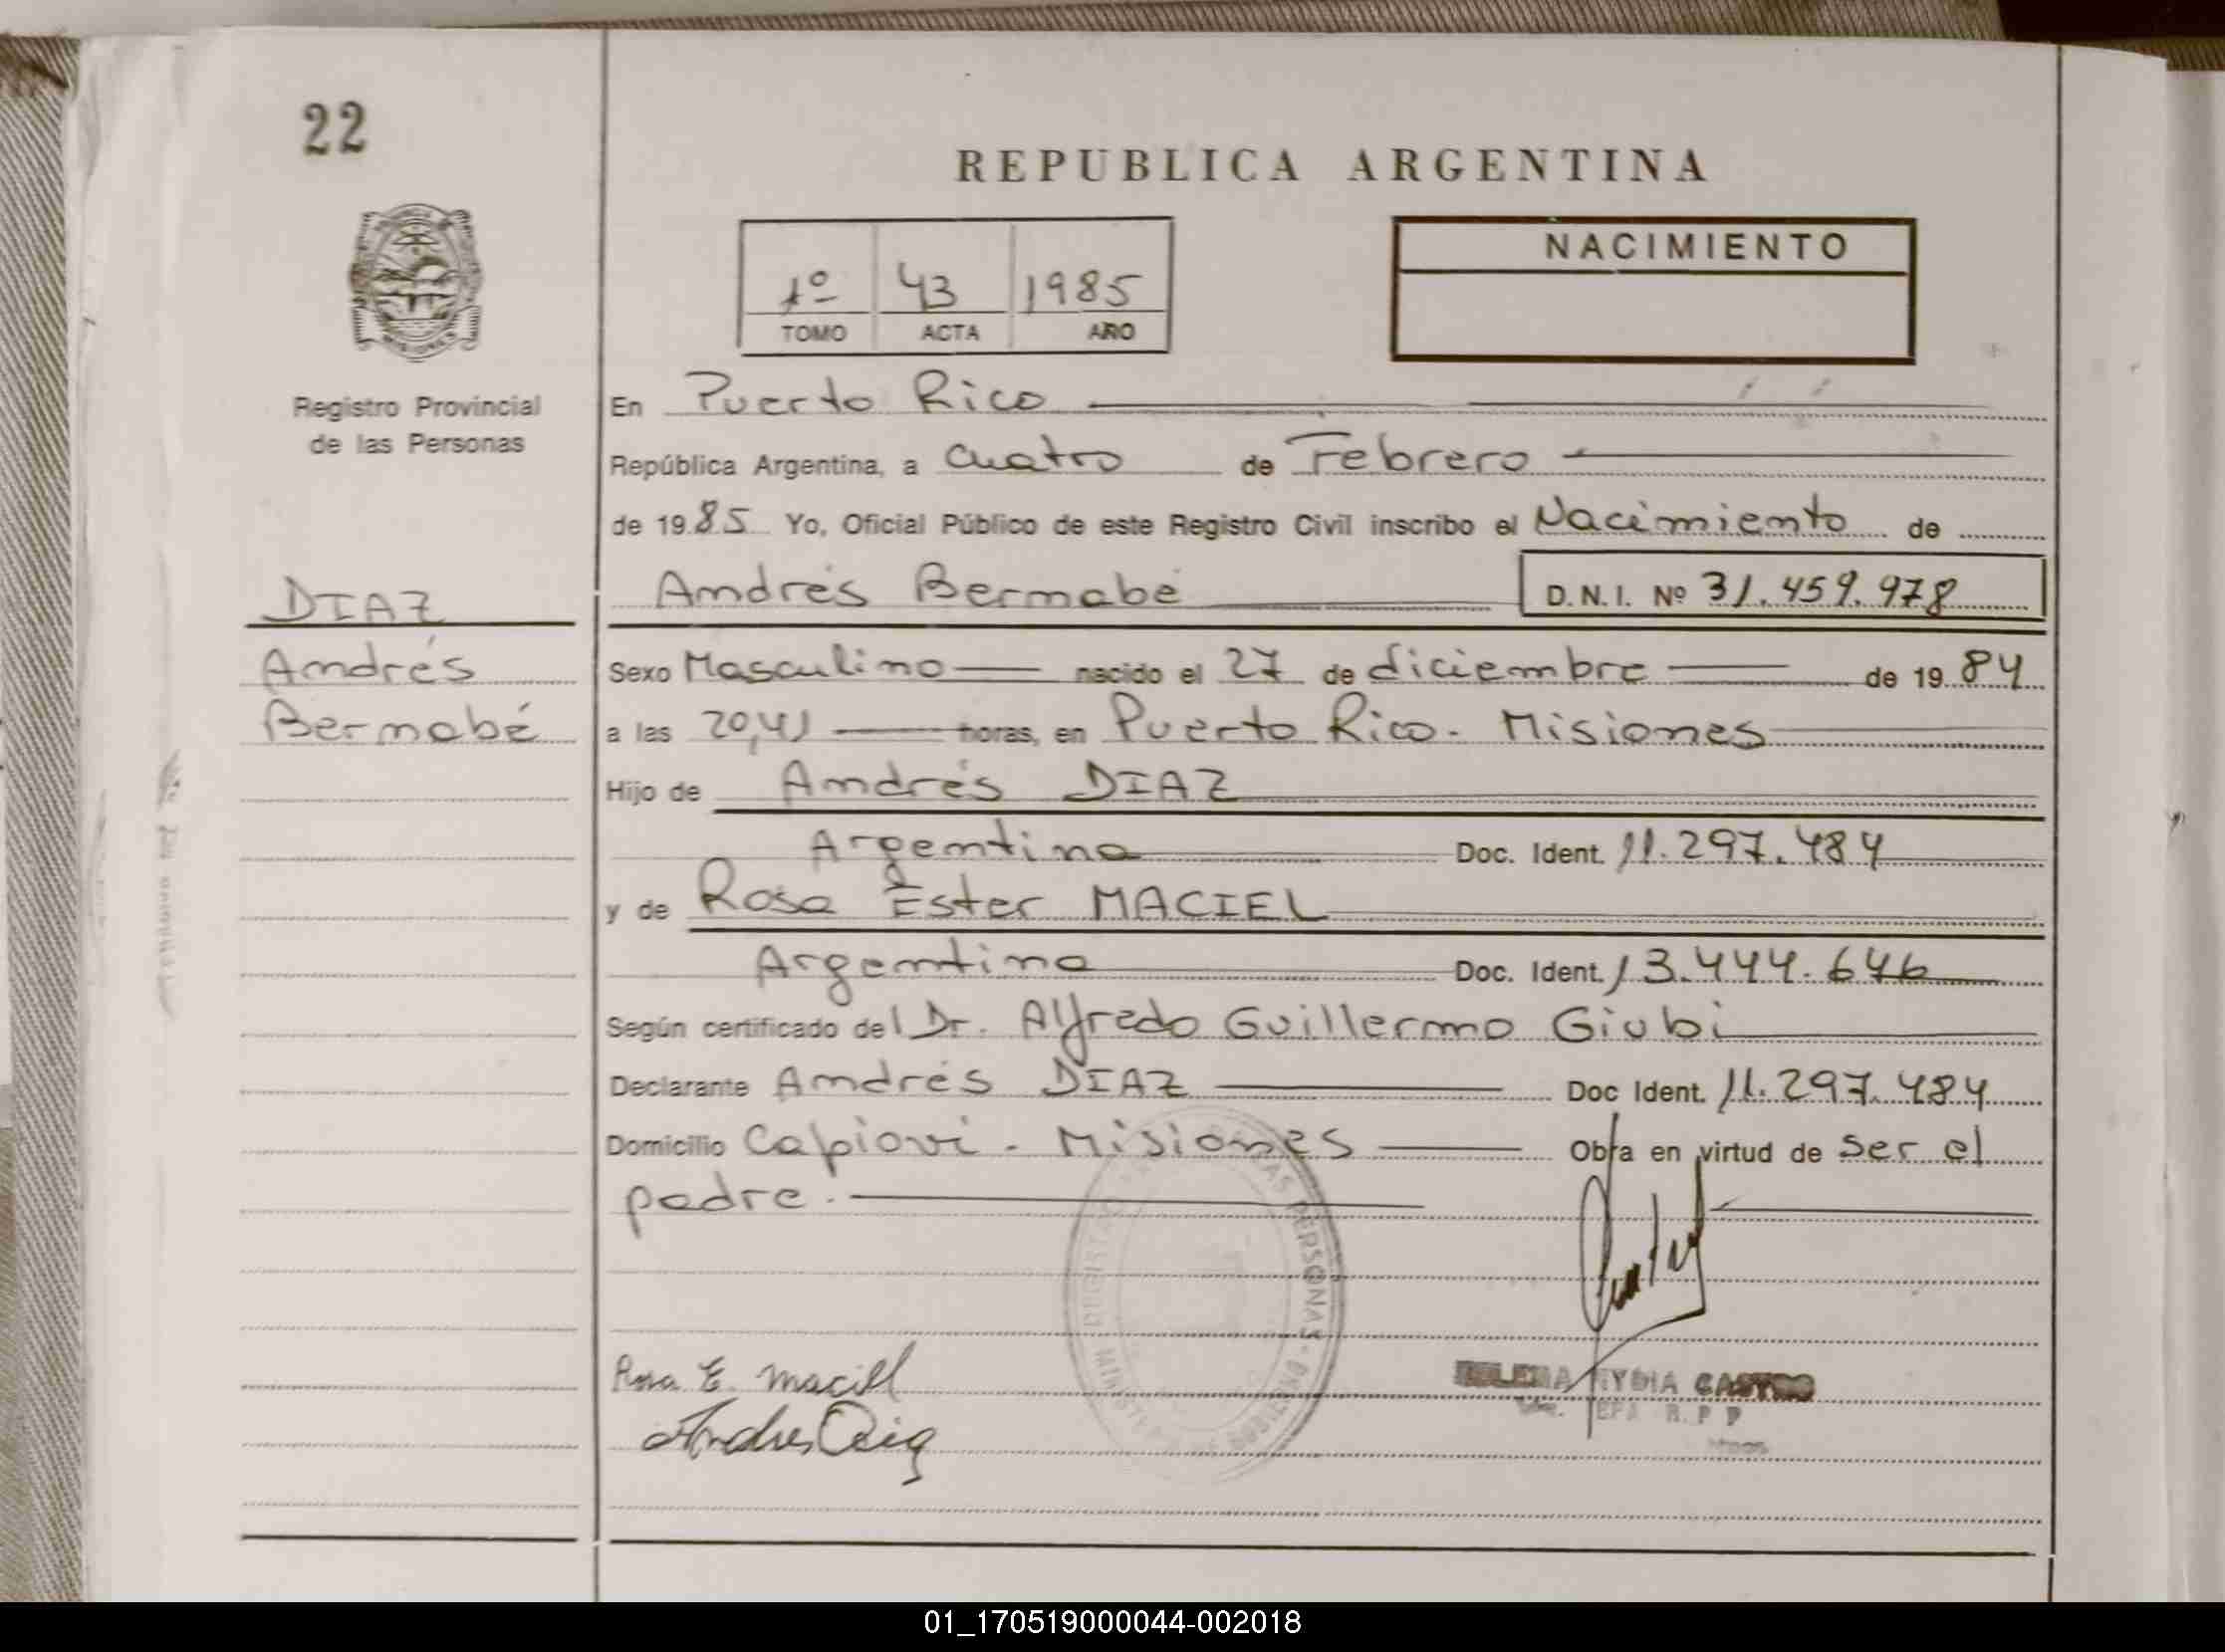 22
REPUBLICA ARGENTINA
NACIMIENTO
1º 43 1985
TOMO ACTA AÑO
MISIONES
Registro Provincial
de las Personas
En Puerto Rico
República Argentina, a cuatro de Febrero
de 1985 Yo, Oficial Público de este Registro Civil inscribo el Nacimiento de
DIAZ
Andrés
Bernabé
Andrés Bernabé D.N.I. Nº 31.459.978
Sexo Masculino nacido el 27 de diciembre de 1984
a las 20,41 horas, en Puerto Rico - Misiones
Hijo de Andrés DIAZ
Argentino Doc. Ident. 11.297.484
y de Rosa Ester MACIEL
Argentina Doc. Ident. 13.444.646
Según certificado del Dr. Alfredo Guillermo Giubi
Declarante Andrés DIAZ Doc Ident. 11.297.484
Domicilio Capiovi - Misiones Obra en virtud de ser el
padre.
PERSONAS
Rosa E. Maciel
CASTRO
Andres Diaz
01_170519000044-002018